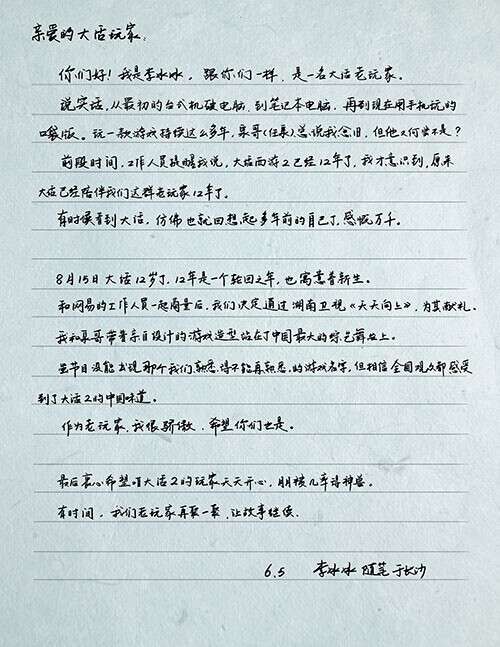 亲爱的大话玩家：
你们好！我是李冰冰，跟你们一样，是一名大话老玩家。
说实话，从最初的台式机破电脑，到笔记本电脑，再到现在用手机玩的
口袋版。玩一款游戏持续这么多年，泉哥（任泉）总说我念旧，但他又何尝不是？
前段时间，工作人员提醒我说，大话西游2已经12年了，我才意识到，原来
大话已经陪伴我们这群老玩家12年了。
有时候看到大话，仿佛也就回想起多年前的自己了，感慨万千。
8月15日大话12岁了，12年是一个轮回之年，也寓意着新生。
和网易的工作人员一起商量后，我们决定通过湖南卫视《天天向上》，为其献礼。
我和泉哥带着亲自设计的游戏造型站在了中国最大的综艺舞台上。
虽节目没能出现那个我们熟悉得不能再熟悉的游戏名字，但相信全国观众都感受
到了大话2的中国味道。
作为老玩家，我很骄傲，希望你们也是。
最后衷心希望咱大话2的玩家天天开心，胡椒几率得神兽。
有时间，我们老玩家再聚一聚，让故事继续。
6.5 李冰冰 随笔于长沙